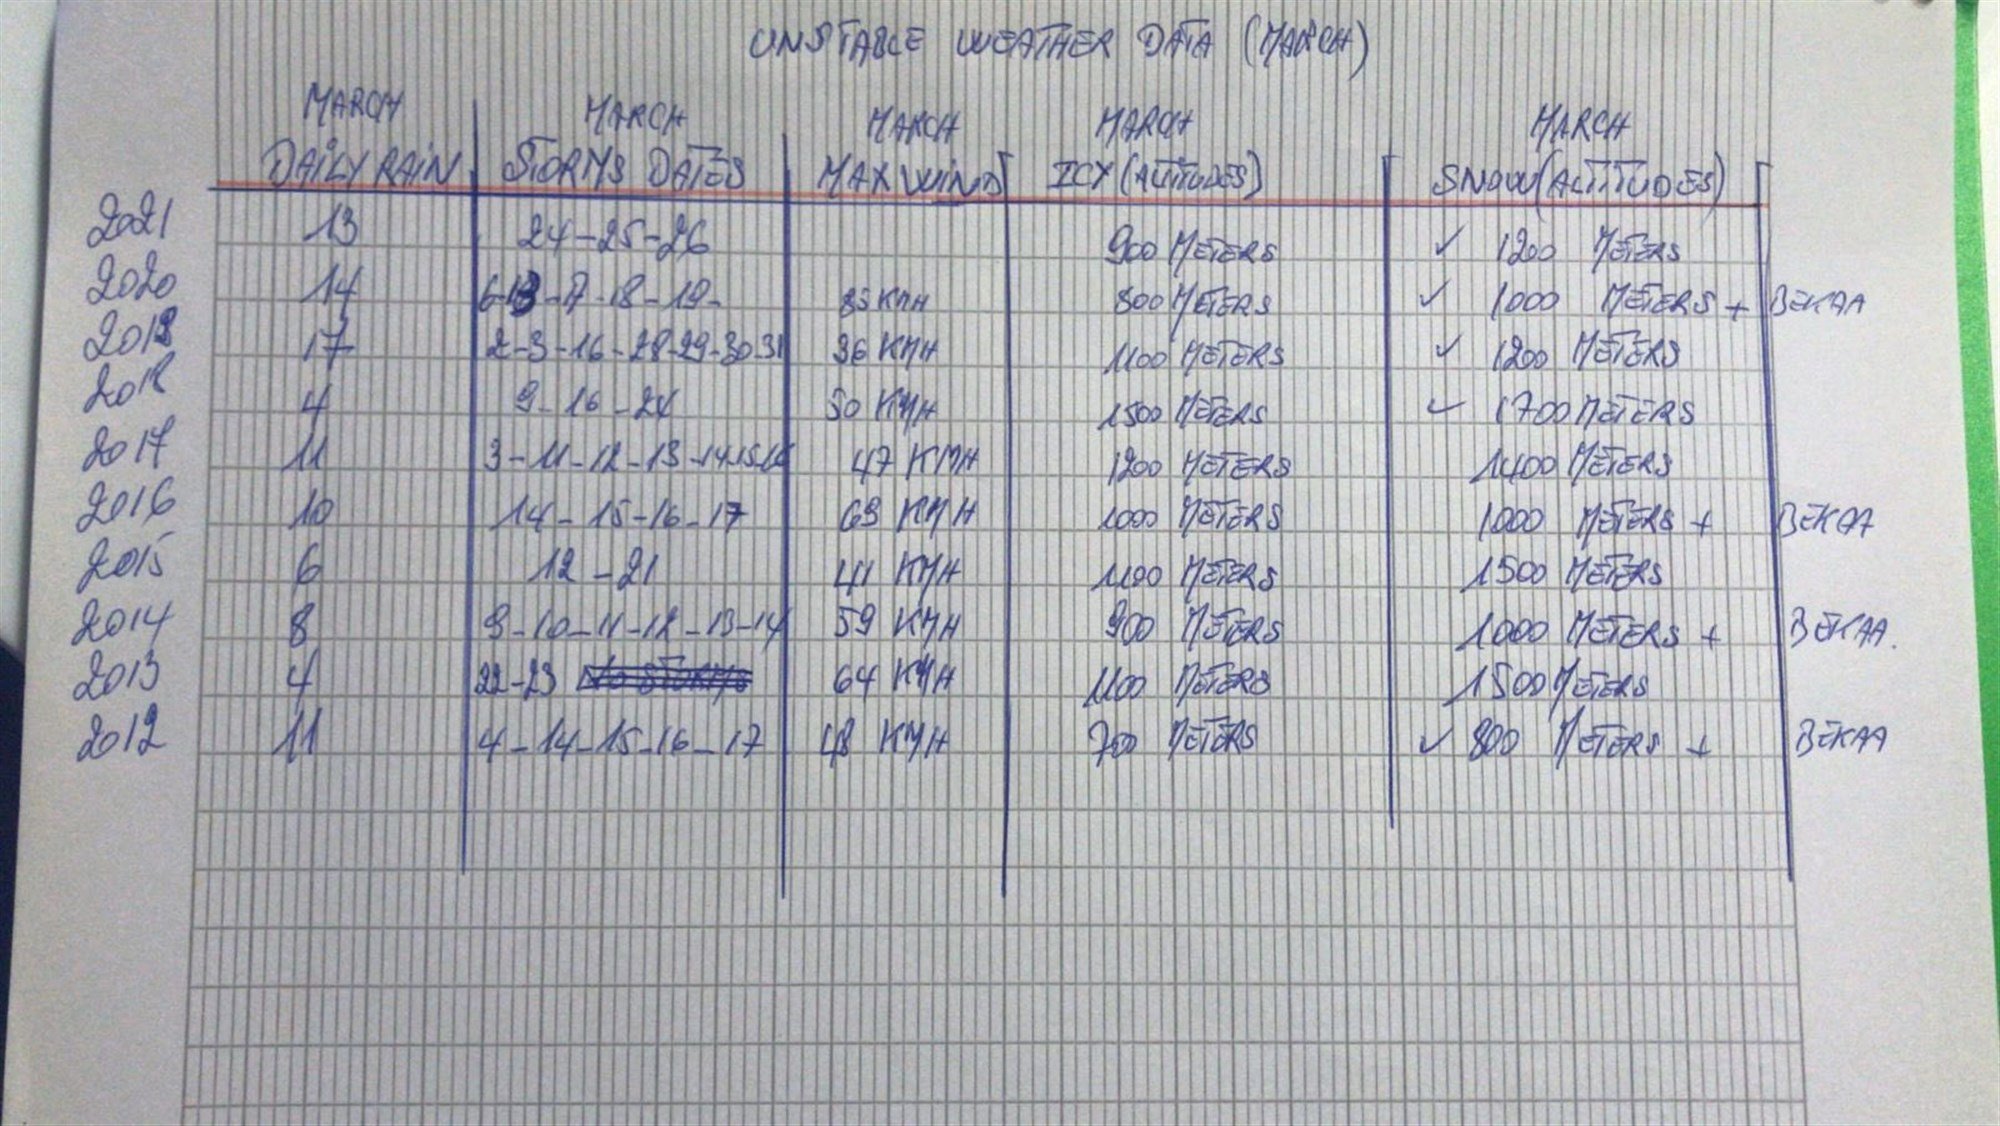 UNSTABLE WEATHER DATA (MARCH)
MARCH MARCH MARCH MARCH MARCH
DAILY RAIN STORMS DATES MAX WIND ICY (ALTITUDES) SNOW (ALTITUDES)
2021 13 24-25-26 900 METERS ✓ 1200 METERS
2020 14 -17-18-19- 85 KMH 800 METERS ✓ 1000 METERS + BEKAA
17 2-3-16-28-29-30-31 36 KMH 1100 METERS ✓ 1200 METERS
4 9-16-24 50 KMH 1500 METERS ✓ 1700 METERS
2017 11 3-11-12-13-14-15-16 47 KMH 1200 METERS 1400 METERS
2016 10 14-15-16-17 69 KMH 1000 METERS 1000 METERS + BEKAA
2015 6 12-21 41 KMH 1100 METERS 1500 METERS
2014 8 9-10-11-12-13-14 59 KMH 900 METERS 1000 METERS + BEKAA.
2013 4 22-23 64 KMH 1100 METERS 1500 METERS
2012 11 4-14-15-16-17 48 KMH 700 METERS ✓ 800 METERS + BEKAA